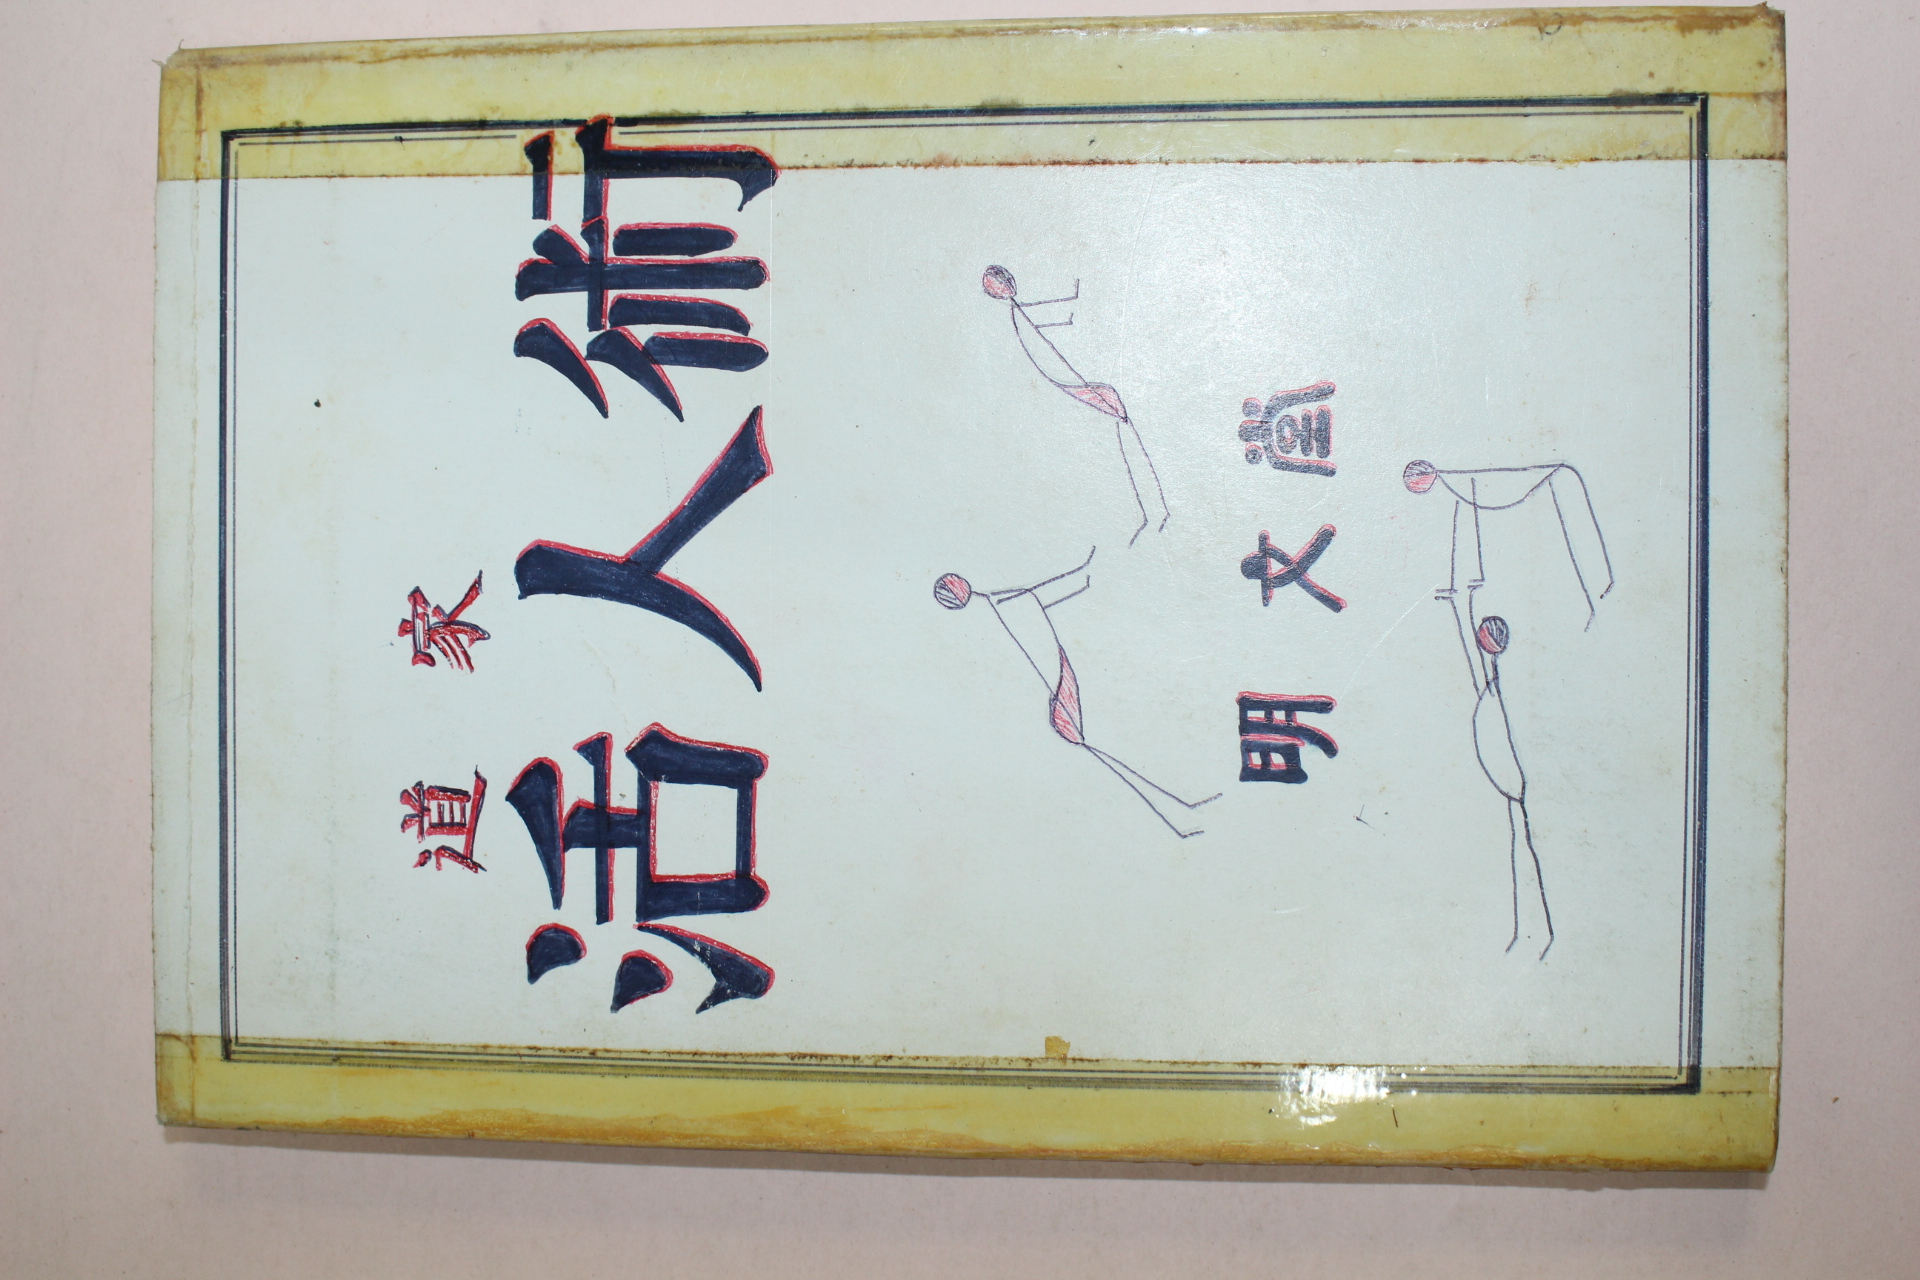 道家
活人術
明文堂